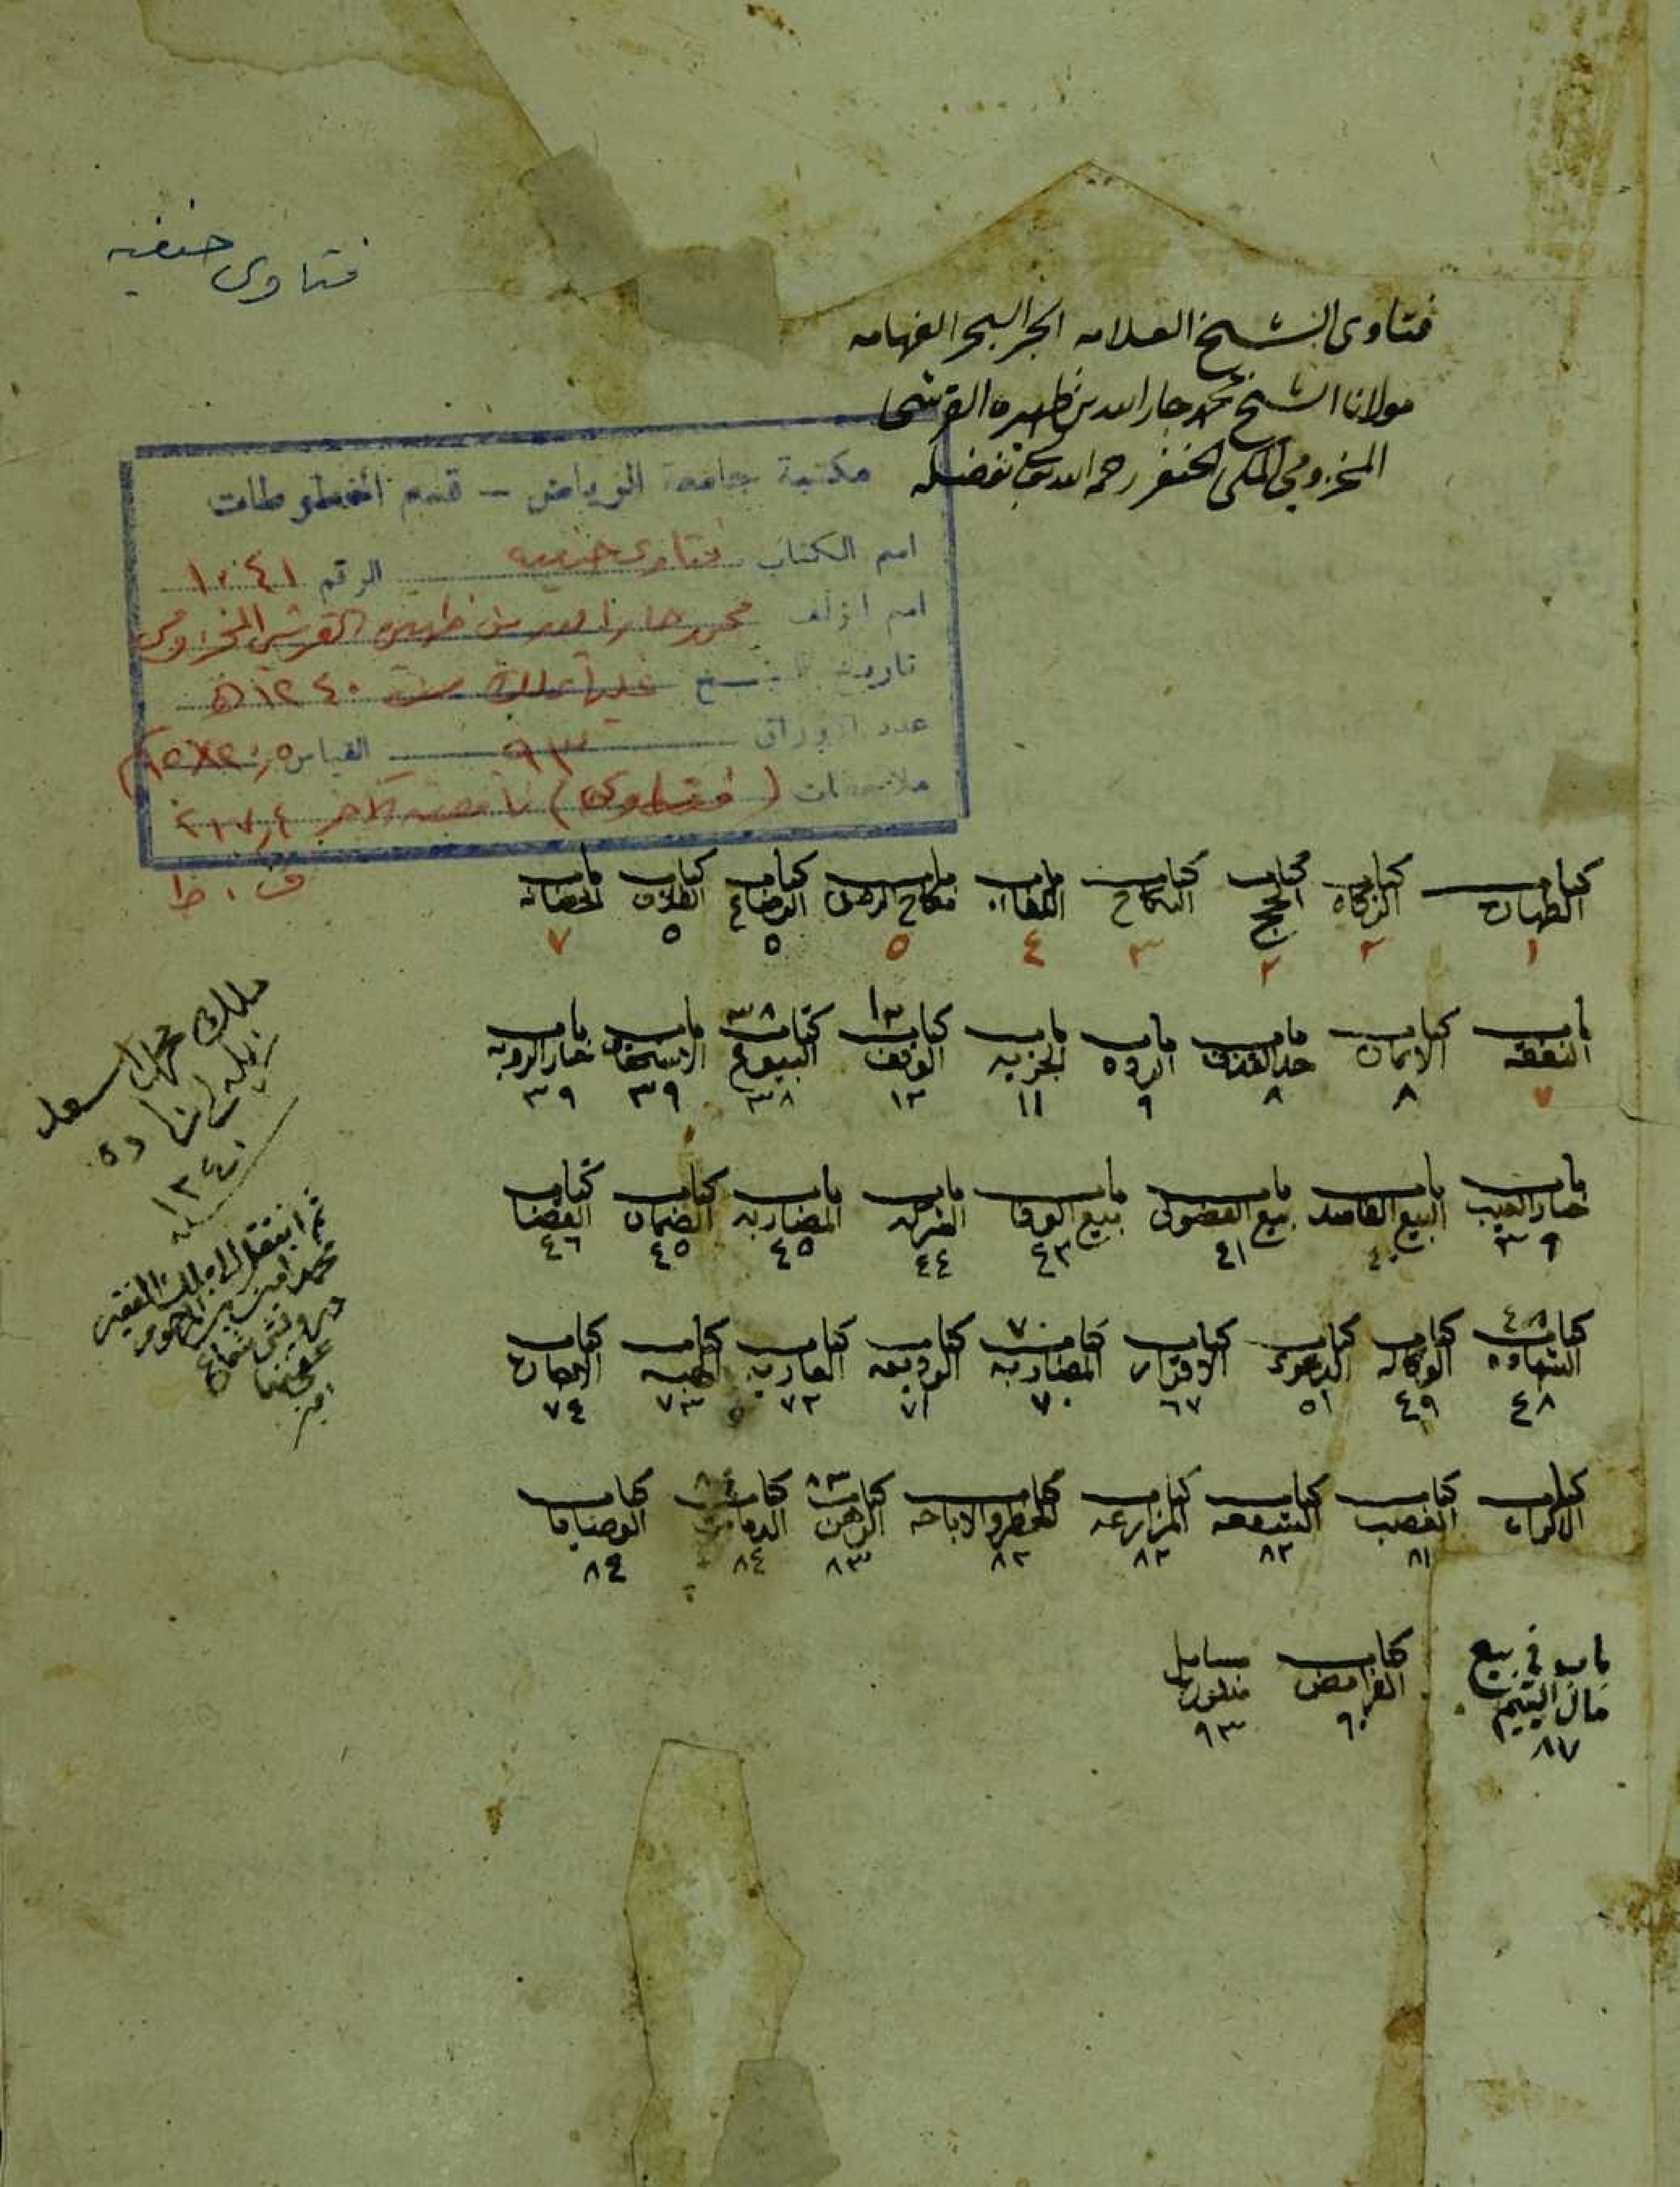 فتاوى حنفيه
فتاوى الشيخ العلامه الحبر البحر الفهامه
مولانا الشيخ محمد جار الله بن ظهيره القرشى
المخزومي المكى الحنفى رحمه الله بفضله
مكتبة جامعة الرياض - قسم المخطوطات
اسم الكتاب فتاوى حنفيه الرقم ١٠٤١
اسم المؤلف محمد جار الله بن ظهيره القرشي المخزومي
تاريخ النسخ عليها تملك سنة ١٢٤٠ هـ
عدد الاوراق ٩٣ القياس
ملاحظات (فتاوى) ناقصة الآخر ٢١٧٫٤
ف . ظ
كتاب الطهارة ١ كتاب الزكاه ٢ كتاب الحج ٢ كتاب النكاح ٣ باب ٤ باب نكاح الرقيق ٥ كتاب الرضاع ٥ كتاب الطلاق ٥ باب الحضانه ٧
باب النفقه ٧ كتاب الايمان ٨ باب حد القذف ٨ باب الرده ٩ باب الجزيه ١١ ١٣ كتاب الوقف ١٣ ٣٨ كتاب البيوع ٣٨ باب الاستحقاق ٣٩ باب خيار الرويه ٣٩
باب خيار العيب ٣٩ باب البيع الفاسد ٤٠ باب بيع الفضولى ٤١ باب بيع الوفا ٤٣ باب الشركه ٤٤ باب المضاربه ٤٥ كتاب الضمان ٤٥ كتاب القضا ٤٦
٤٨ كتاب الشهاده ٤٨ كتاب الوكاله ٤٩ كتاب الدعوى ٥١ كتاب الاقرار ٦٧ ٧٠ كتاب المضاربه ٧٠ كتاب الوديعه ٧١ كتاب العاريه ٧٢ كتاب الهبه ٧٣ كتاب الاجارة ٧٤
كتاب الاكراه كتاب الغصب ٨١ كتاب الشفعه ٨٢ كتاب المزارعه ٨٢ كتاب الحظر والاباحه ٨٢ ٨٣ كتاب الرهن ٨٣ ٨٤ كتاب ٨٤ كتاب الوصايا ٨٤
باب في بيع مال اليتيم ٨٧ كتاب الفرائض ٩٠ مسايل منثورة ٩٣
محمد اسعد
زاده
١٢٤٠
سنه
ثم انتقل الى ملك الفقير
محمد امين بن المرحوم
درويش
عفي عنهما